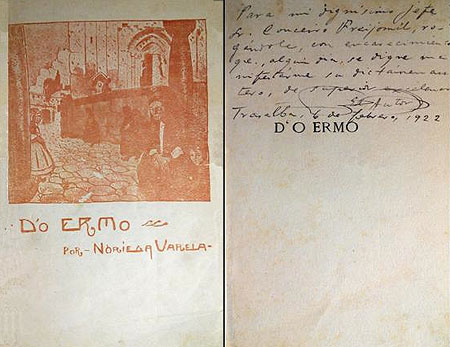 D'O ERMO
POR - NORIEGA VARELA -
Para mi dignísimo Jefe
Sr. Couceiro Freijomil, ro-
gándole, con encarecimiento
que, algún día, se digne ma-
nifestarme su dictamen aus-
tero, de
El Autor
Trasalba, 6 de febrero, 1922
D'O ERMO